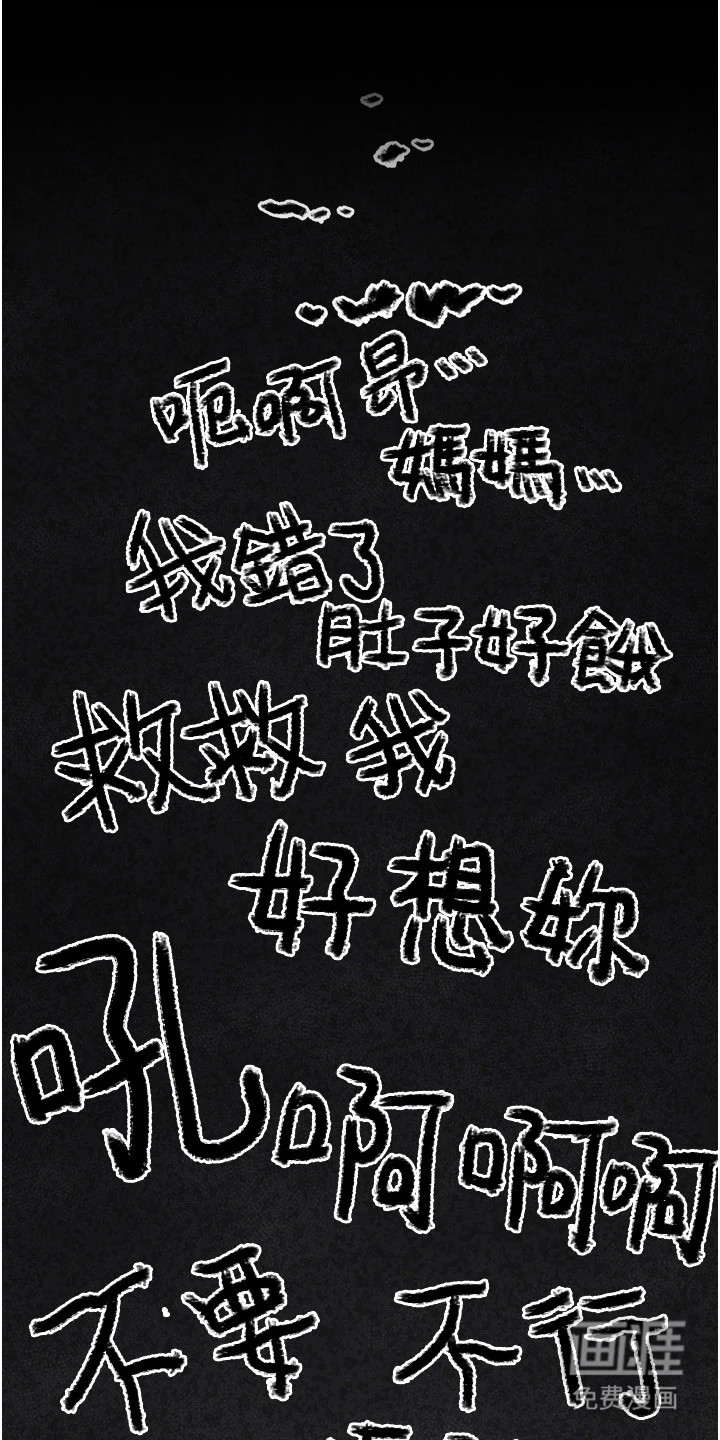 呃啊昂…
媽媽…
我錯了
肚子好餓
救救我
好想妳
吼啊啊啊
不要 不行
画涯
免费漫画